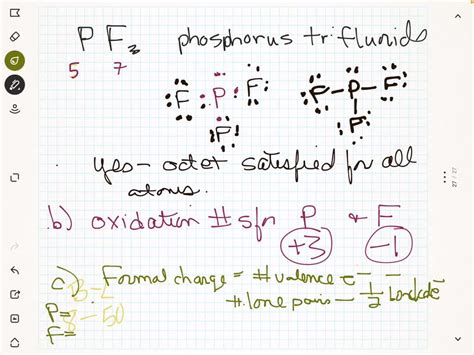 PF₃ phosphorus trifluoride
5 7
:F:P:F: :F-P-F:
F P
yes - octet satisfied for all
atoms.
b) oxidation #s for P & F
+3 -1
c) Formal charge = # valence e⁻ -
# lone pairs - 1/2 bonded e⁻
P=
F=
27 / 27